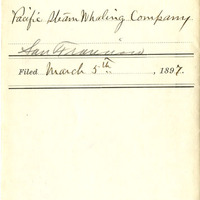 Pacific Steam Whaling Company.
San Francisco
Filed March 5th, 1897.